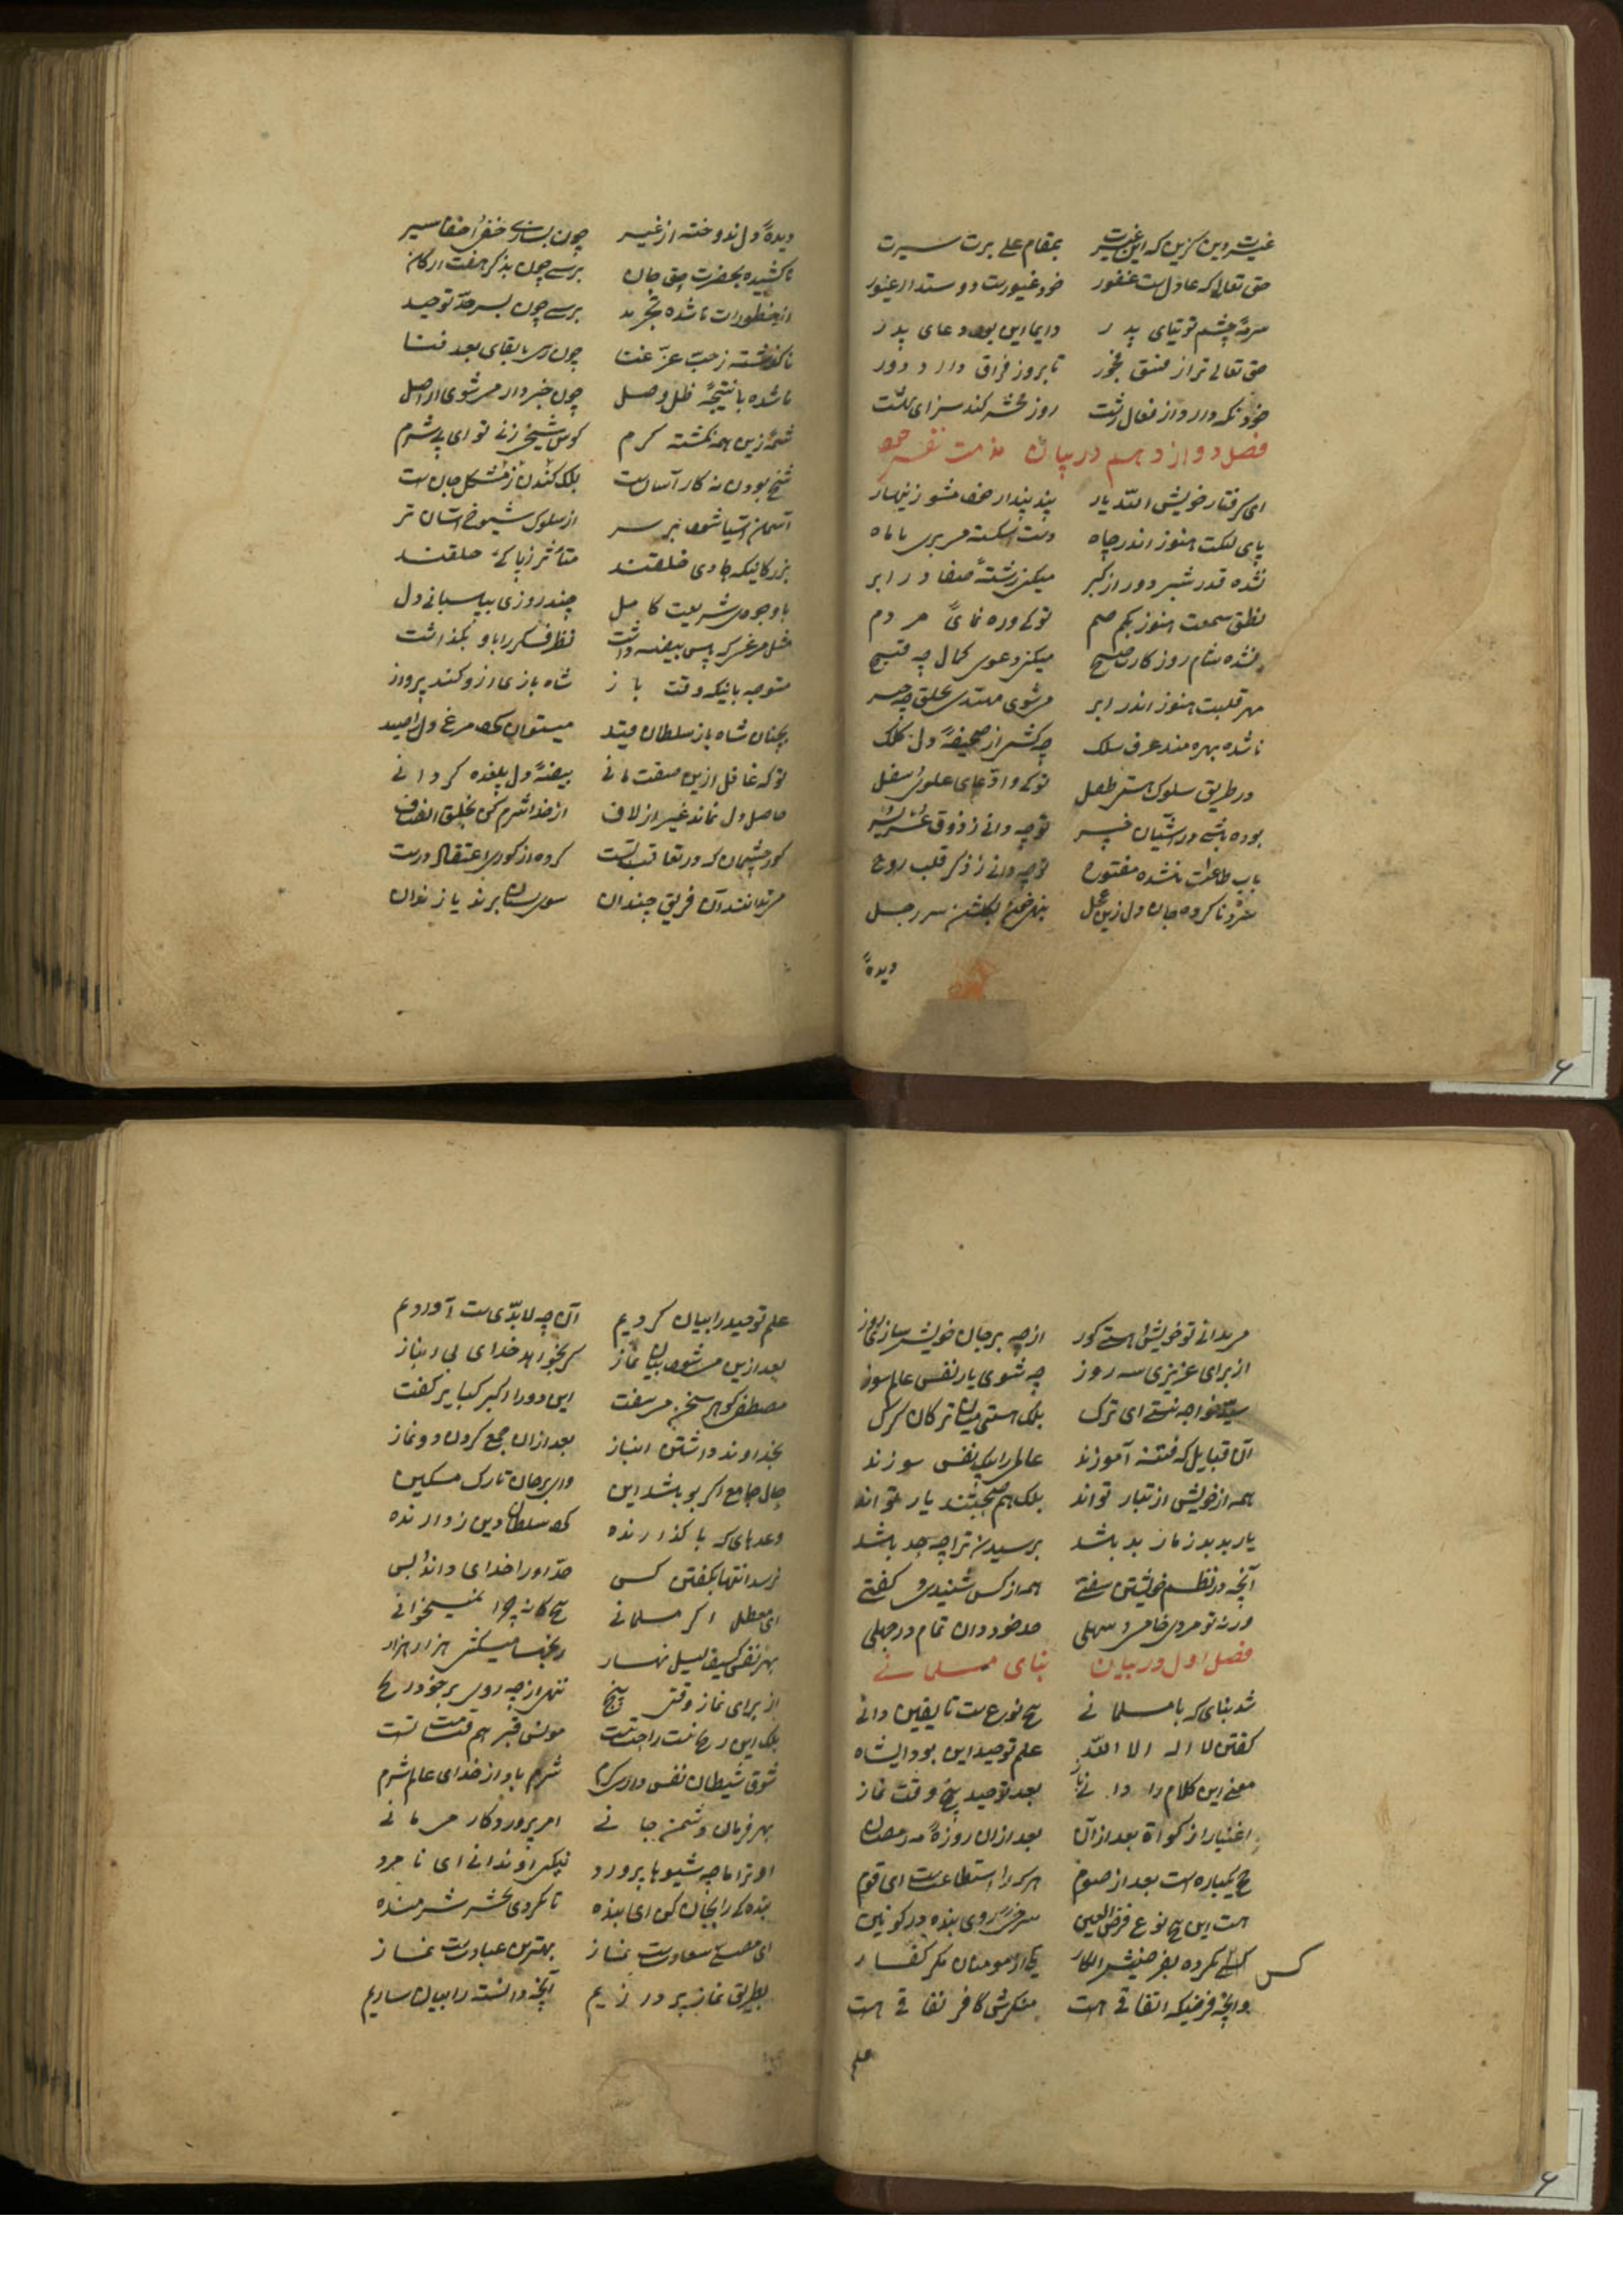 غیرت دین گزین که این غیرت بمقام علی برت سیرت
حق تعالی که عادلست غفور خود غیورست دوستدار غیور
سرمهٔ چشم توتیای پدر دایما این بود دعای پدر
حق تعالی ترا ز فسق فجور تا بروز فراق دارد دور
خود نکه دارد از فعال زشت روز محشر کند سزای بهشت
فصل دوازدهم در بیان مذمت نفس خود
ای گرفتار خویش الله یار پند پندار خود مشو زنهار
پای لنکت هنوز اندر چاه دست اشکسته میبری با ماه
نشده قدر شبر دور از کبر میکنی رشتهٔ صفا در ابر
نطق سمعت هنوز بکم صم تو که و ره نمای مردم
نشده شام روز کارت صبح میکنی دعوی کمال چه قبیح
مهر قلبت هنوز اندر ابر میشوی مهتدی بخلق چه
ناشده بهره مند عرف سلک چه کشی از صحیفهٔ دل کلک
در طریق سلوک هستی طفل تو که و ادعای علوی سفل
بوده باشی در آشیان تو چه دانی ز ذوق
باب طاعت نشده مفتوح تو چه دانی ز ذکر قلب روح
ناکرده جان دل زین سر رجل
دیدهٔ
دیدهٔ دل ندوخته از غیر چون بسازی خفی اخفا سیر
ناکشیده بحضرت حق جان برسی چون بذکر هفت ارکان
از خطورات ناشده تجرید برسی چون بسرحد توحید
ناگذشته ز حب عز عنا چون رسی با بقای بعد فنا
ناشده با نتیجهٔ ظل وصل چون خبردار میشوی از اصل
شمهٔ زین همه نکشته کرم کوس شیخی زنی تو ای بی شرم
شیخ بودن نه کار آسانست بلک کندن ز مشکل جانست
آسمان آسیا شود بر سر از سلوک شیوخ آسان تر
بزرگانیکه هادی خلقند متأثر ز پاکی حلقند
با وجود شریعت کامل چند روزی بپاسبانی دل
مثل مرغی که پس بیضه داشت نظر فکر را باو بگذاشت
متوجه بآنیکه وقت باز شاه بازی ازو کند پرواز
بچنان شاه باز سلطان قید میتوان کرد مرغ دل را صید
تو که غافل ازین صفت مانی بیضهٔ دل پلغده گردانی
حاصل دل نماند غیر از لاف از خدا شرم کن بخلق انصاف
کور چشمان که در تعاقب تست کرده از کوری اعتقاد درست
می ندانند آن فریق چندان سوی بستان برند یا زندان
میندانی تو خویش هستی کور از چه بر جان خویش سازی زور
از برای عزیزی سه روز چه شوی یار نفس عالم سوز
سید خواجه نیستی ای ترک بلک هستی میان ترکان گرک
آن قبایل که فتنه آموزند عالمی را بیک نفس سوزند
همه از خویشی از تبار تواند بلک هم صحبتند یار تواند
یار بد بدتر ز مار بد باشد برسیدن ترا چه حد باشد
آنچه در نظم خویشتن سفتی همه از کس شنیدی و گفتی
ورنه تو مردی خامی و سهلی حد خود دان تمام در جهلی
فصل اول در بیان بنای مسلمانی
شد بنای که با مسلمانی پنج نوع ست تا یقین دانی
گفتن لا اله الا الله علم توحید این بود ای شاه
معنی این کلام را دانی بعد توحید پنج وقت نماز
اغنیا را زکوة بعد از آن بعد از آن روزهٔ مه رمضان
حج یکباره است بعد از صوم هر که را استطاعت است ای قوم
هست این پنج نوع فرض العین سرخ روی بنده در کونین
کس
نکرده بفرضیش انکار یکی از مومنان مگر کفار
وانچه فرضیکه اتفاقی هست منکرش کافر نفاقی هست
علم
علم توحید را بیان کردیم آن چه لابدیست آوردیم
بعد ازین میشود بیان نماز گر بخواهد خدای بی انباز
مصطفی گوهر سخن میسفت این دو را اکبر کبایر گفت
بخداوند داشتن انباز بعد از آن جمع کردن دو نماز
حال جامع اگر بباشد این وای بر جان تارک مسکین
وعدهای که با گذارنده کرد سلطان دین زدارنده
نرسد انتها بگفتن کس حد او را خدای داند بس
ای معطل اگر مسلمانی پنج گانه چرا نمیخوانی
بهر نفس کثیف لیل نهار رنجها میکشی هزار هزار
از برای نماز وقتی پنج ننهی از چه روی بر خود رنج
بلک این رنج نیست راحت تست مونس قبر هم قیامت تست
شوق شیطان نفس داری گرم شرم بادا از خدای عالم شرم
بهر فرمان دشمن جانی امر پروردگار میمانی
او ترا با چه شیوها پرورد نیکی او ندانی ای نامرد
بندگی را بجان کن ای بنده تا نگردی بحشر شرمنده
ای مصلی سعادتست نماز بهترین عبادتست نماز
بطریق نماز پردازیم آنچه دانسته را بیان سازیم